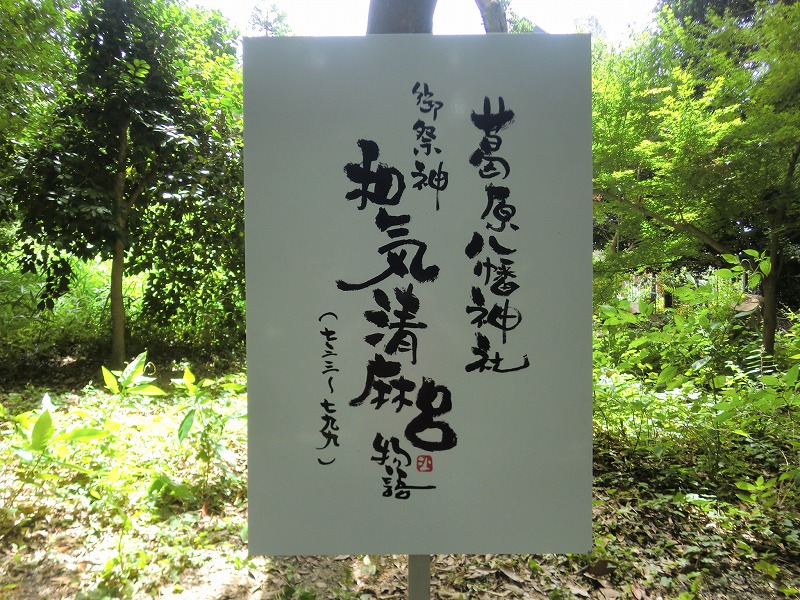 葛原八幡神社
御祭神
和気清麻呂
物語
(七三三〜七九九)